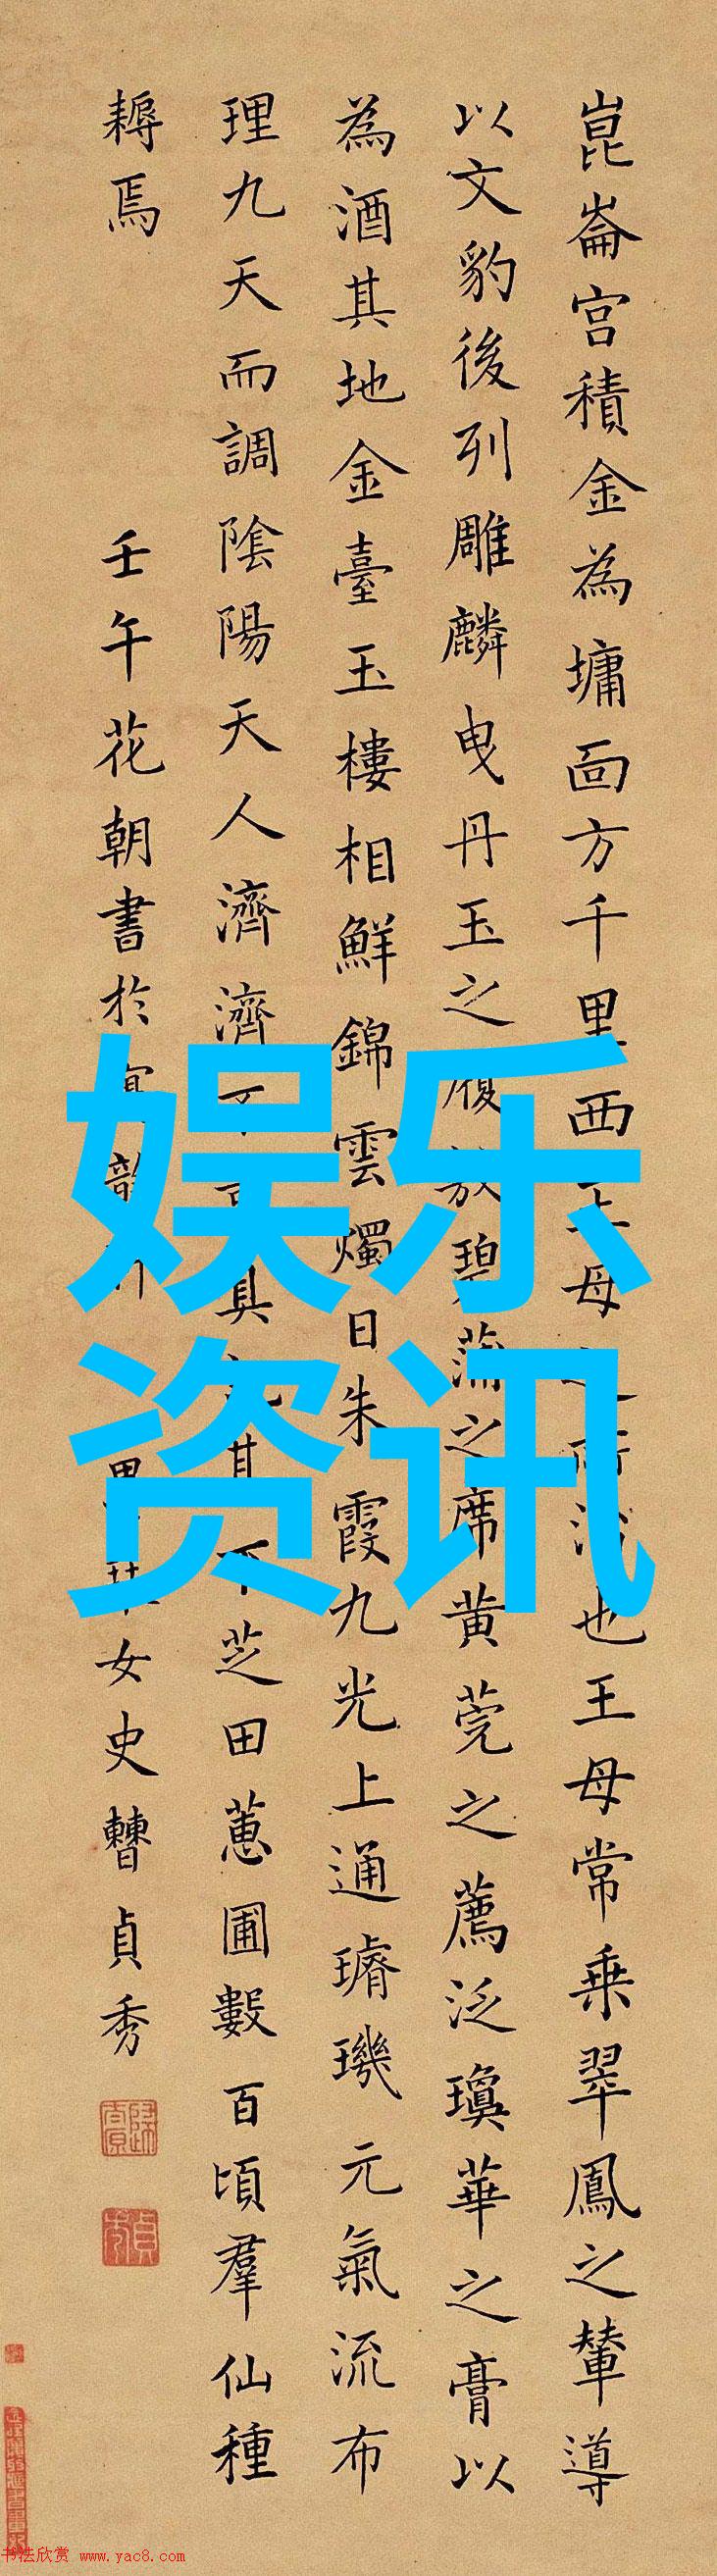 崑崙宮積金為墉面方千里西王母之所治也王母常乘翠鳳之輦導
以文豹後列雕麟曳丹玉之履敷碧蒲之席黃莞之薦泛瓊華之膏以
為酒其地金臺玉樓相鮮錦雲燭日朱霞九光上通璿璣元氣流布
理九天而調陰陽天人濟濟不可具記其下芝田蕙圃數百頃羣仙種
耨焉
壬午花朝書於寫韻軒 墨琴女史曹貞秀
娱乐
资讯
书法欣赏 www.yac8.com